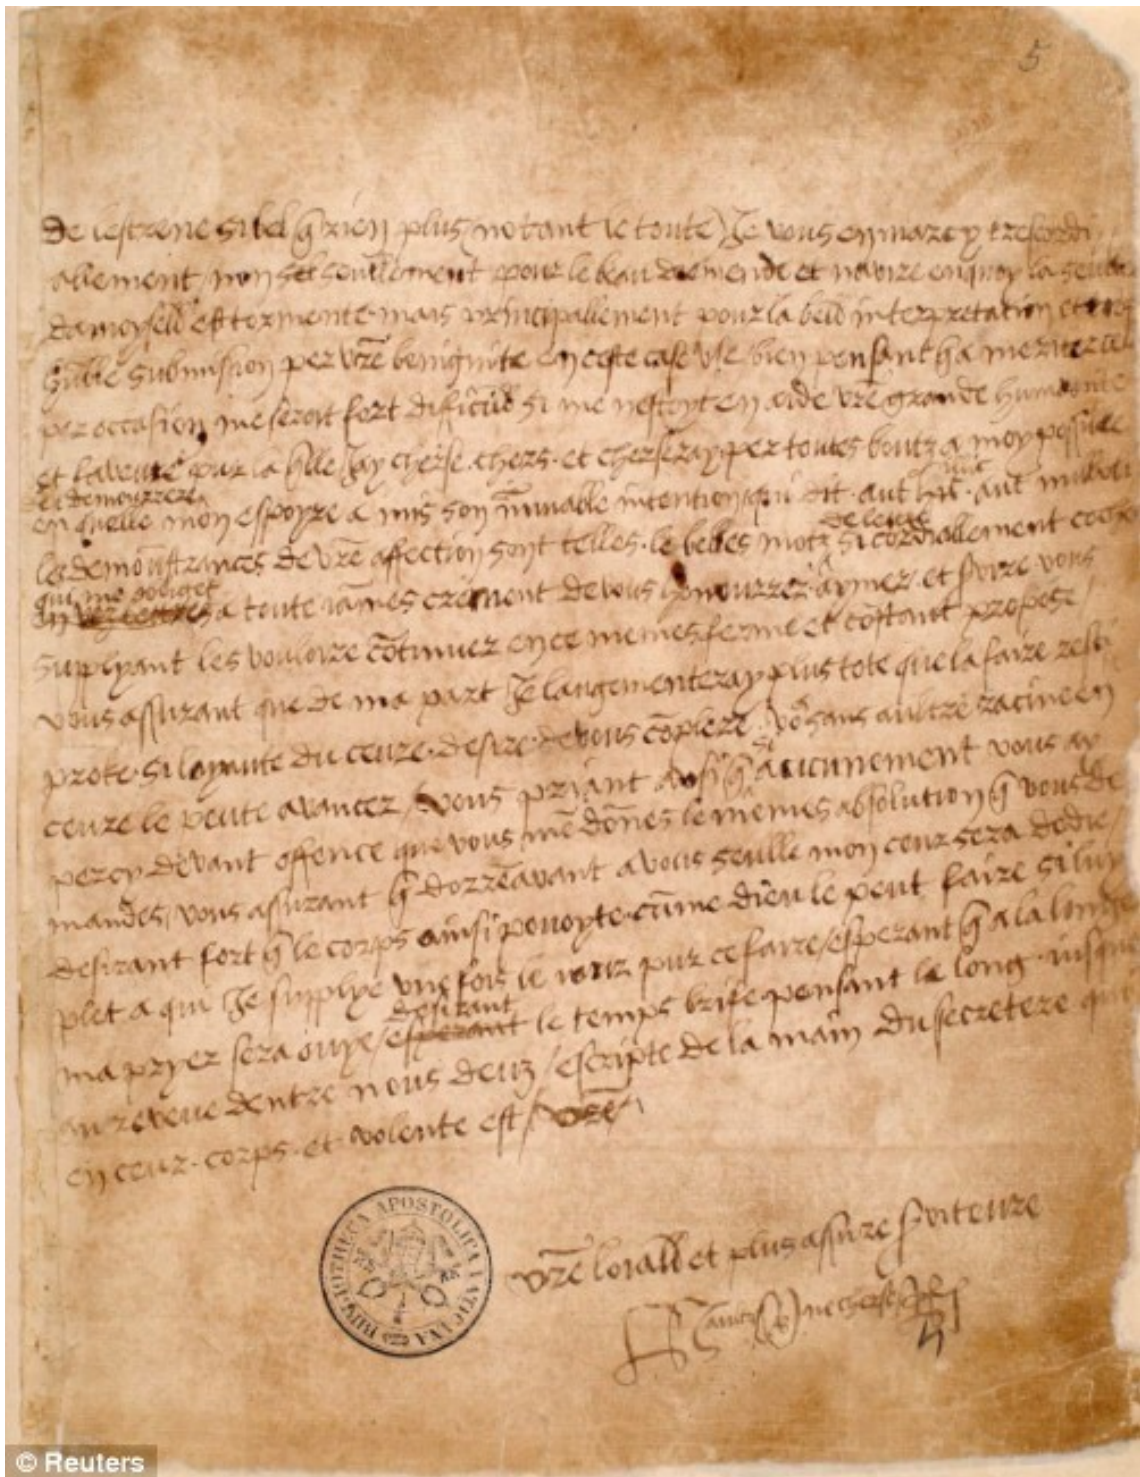 5
De lestrene si bel q̃ rien plus (notant le toute) Je vous en marcy trescordi
allement, non seulleement pour le beau diemende et navire en quoy la seulle
damoyselle est tormente mais principallement pour la belle interpretation et trop
hũble submission per vr̃e benignite en ceste case usé bien pensant q̃
per occasion me seroit fort dificille si me nestoyt en aide vr̃e grande humanite
et pur la q̃lle Jay cherse chers et cherseray per toutes boutz a moy possible
de demourrere
en quelle mon espoyre a mis son immuable intention qui dit aut illic aut nullibi
les demoũstrances de vr̃e affection sont telles le belles motz de letre si cordiallement
qui me obliget
a toute jãmes de vous honourrer aymer et servire vous
supplyant les vouloire cõtinuer en ce mesmes ferme et cõstant propose
vous assurant que de ma part Je laugementeray plus tote que la faire reci
proke si loyaute du ceure desire de vous cõplere sans aultre racine en
ceure le peute avancer, vous priant aussi q̃ si aucunement vous ay
per cy devant offence que vous me dõnes le mesmes absolution q̃ vous de
mandes, vous assurant q̃ dorreñavant a vous seulle mon ceur sera dedie
desirant fort q̃ le corps ainsi pouoyte cũme dieu le peut faire si luy
plet a qui Je supplye une fois le jour pur ce faire, esperant q̃ a la longe
ma pryer sera ouye, desirant le temps brife pensant le long jusque
au reveue dentre nous deuz, escripte de la main du secretere qui
en ceur corps et volente est, vr̃e
vr̃e loiall et plus assure serviteure
H aultre ne cherse R
BIBLIOTHECA APOSTOLICA VATICANA
© Reuters